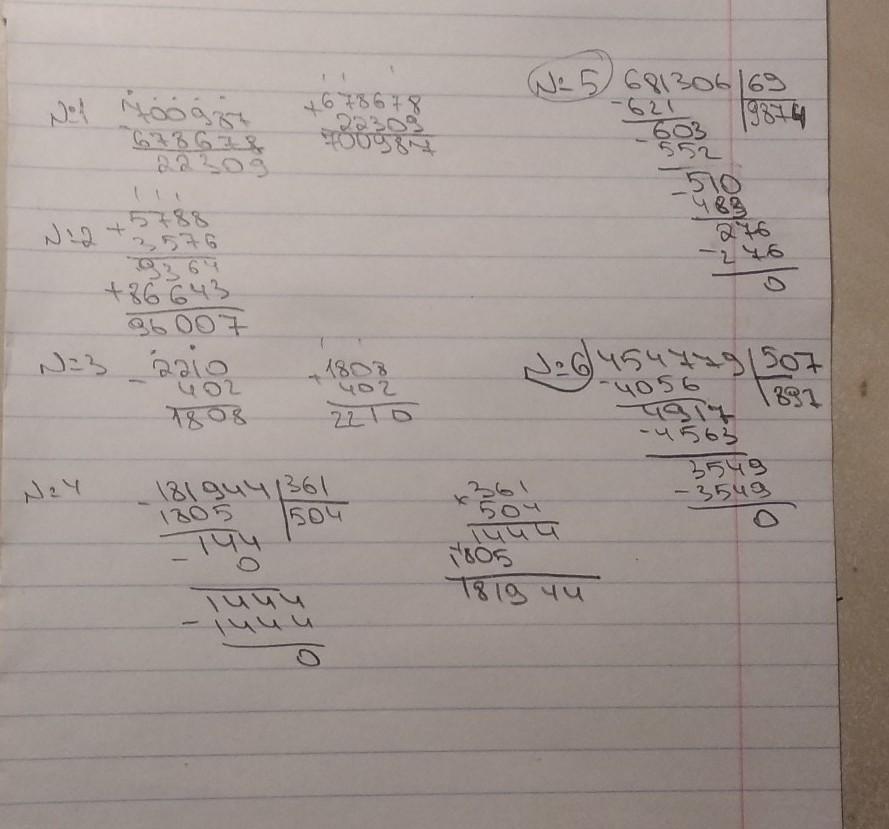 №1 700987
-678678
22309
+678678
22309
700987
№2 +5788
3576
9364
+86643
96007
№3 -2210
402
1808
+1808
402
2210
№4 -181944 | 361
1805 | 504
-144
0
1444
-1444
0
×361
504
1444
+1805
181944
№5 681306 | 69
-621 | 9874
603
-552
510
-483
276
-276
0
№6 454779 | 507
-4056 | 897
4917
-4563
3549
-3549
0